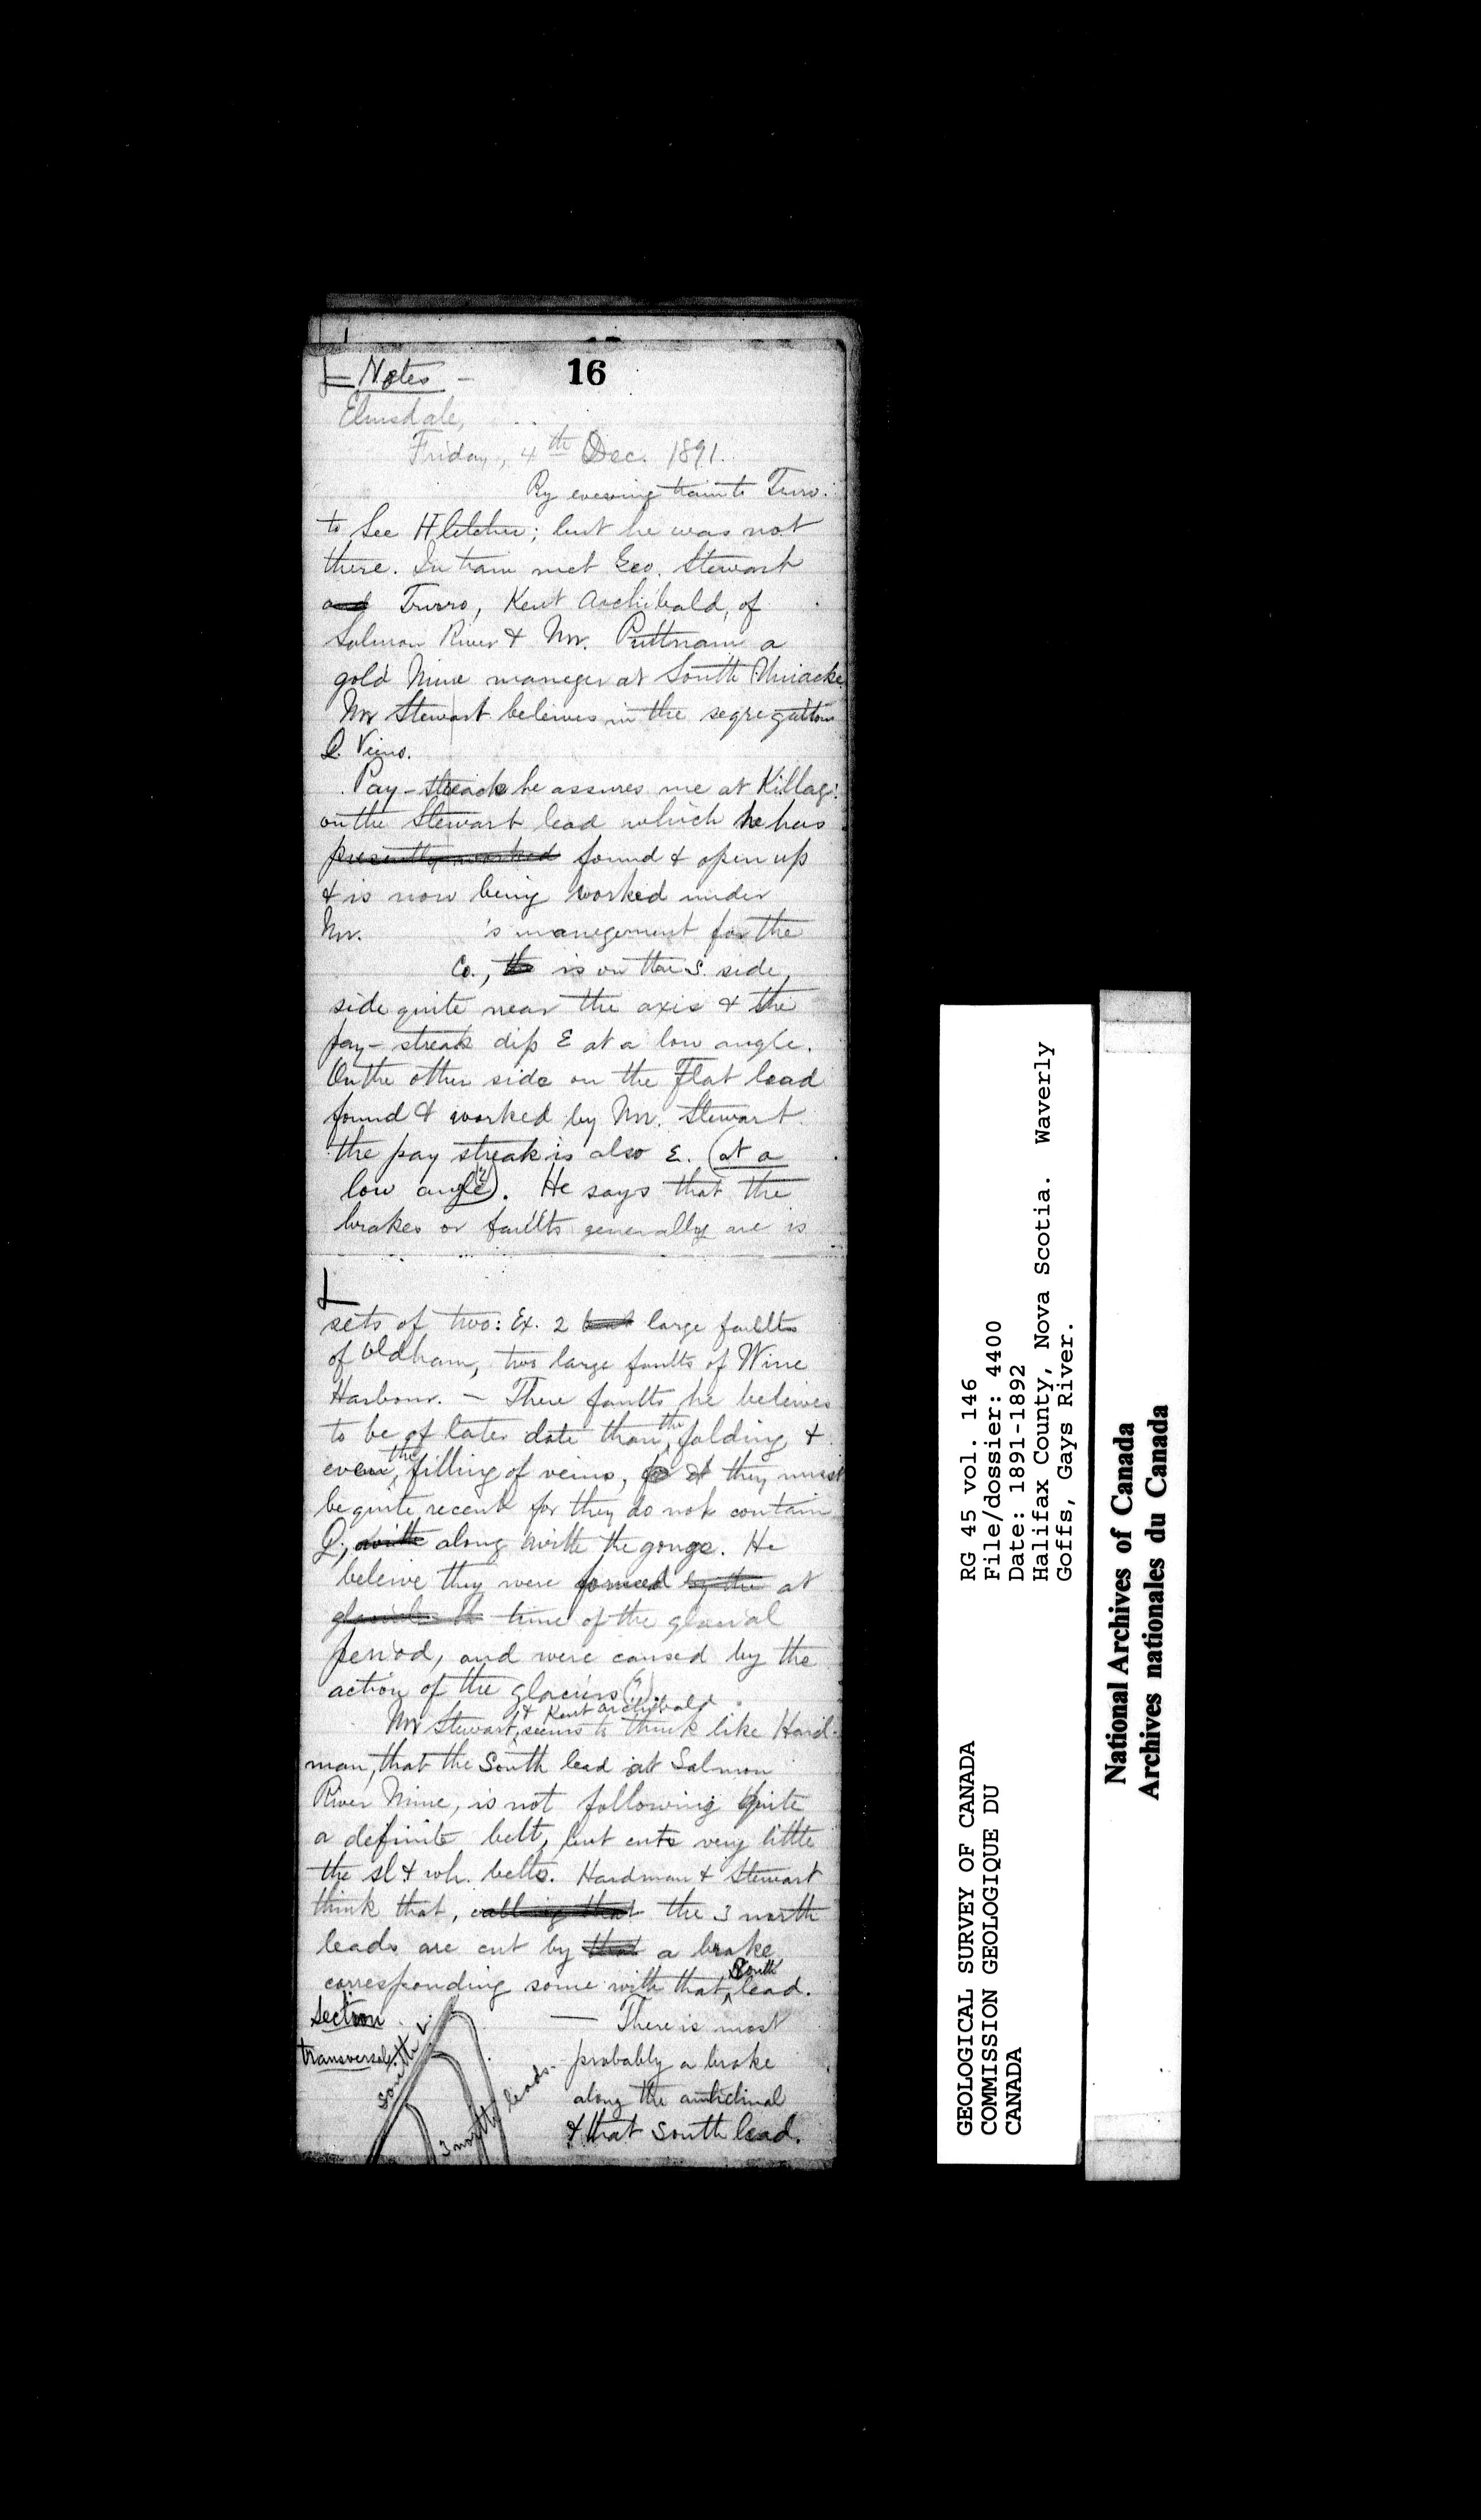 Notes -
16
Elmsdale,
Friday, 4th Dec. 1891.
By evening train to Truro
to See Fletcher; but he was not
there. In train met Geo. Stewart
and Truro, Kent Archibald, of
Salmon River & Mr. Puttnam a
gold Mine manager at South Uniacke
Mr Stewart beleives in the segregation
Q. Veins.
Pay-streak he assures me at Killag
on the Stewart lead which he has
presently worked found & open up
& is now being worked under
Mr. 's management for the
Co., the is on the S. side,
side quite near the axis & the
pay-streak dip E at a low angle.
On the other side on the Flat lead
found & worked by Mr. Stewart
the pay streak is also E. (at a
low angle(?)). He says that the
brakes or faults generally are is
sets of two: Ex. 2 large faults
of Oldham, two large faults of Wine
Harbour. — These faults he beleives
to be of later date than the folding &
even the filling of veins, they must
be quite recent for they do not contain
Q; with along with the gouge. He
beleive they were formed by the at
time of the glacial
period, and were caused by the
action of the glaciers (?).
Mr Stewart, & Kent Archibald seems to think like Hard-
man, that the South lead at Salmon
River Mine, is not following quite
a definite belt, but cuts very little
the sl. & wh. belts. Hardman & Stewart
think that, calling that the 3 north
leads are cut by that a brake
corresponding some with that South lead.
Section
transversal.
South L.
3 north leads.
— There is most
probably a brake
along the anticlinal
& that South lead.
GEOLOGICAL SURVEY OF CANADA
COMMISSION GEOLOGIQUE DU
CANADA
RG 45 vol. 146
File/dossier: 4400
Date: 1891-1892
Halifax County, Nova Scotia. Waverly
Goffs, Gays River.
National Archives of Canada
Archives nationales du Canada